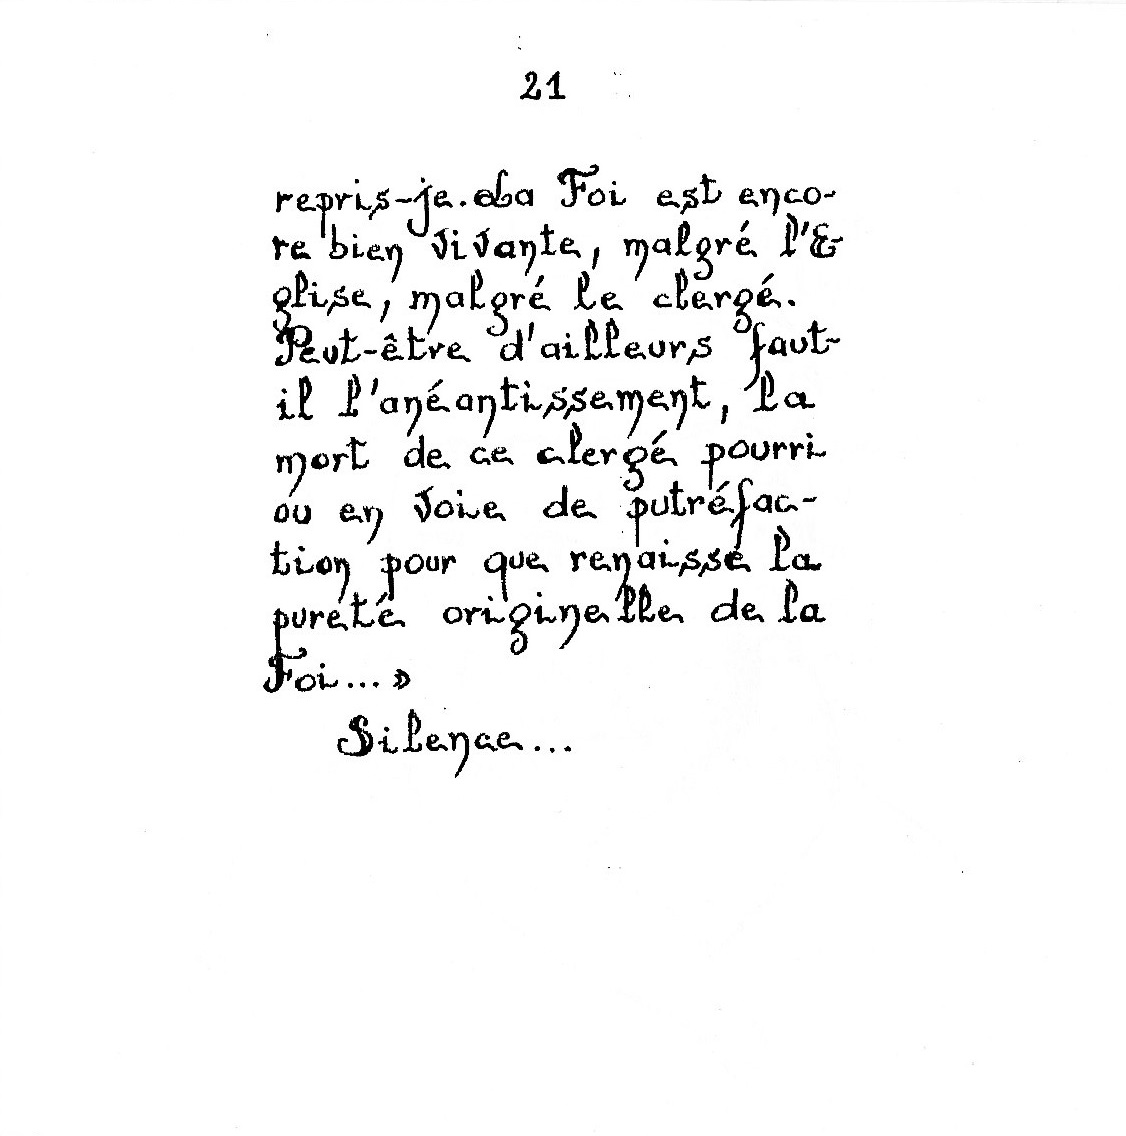 21
repris-je. La Foi est enco-
re bien vivante, malgré l'E-
glise, malgré le clergé.
Peut-être d'ailleurs faut-
il l'anéantissement, la
mort de ce clergé pourri
ou en voie de putréfac-
tion pour que renaisse la
pureté originelle de la
Foi... »
Silence...